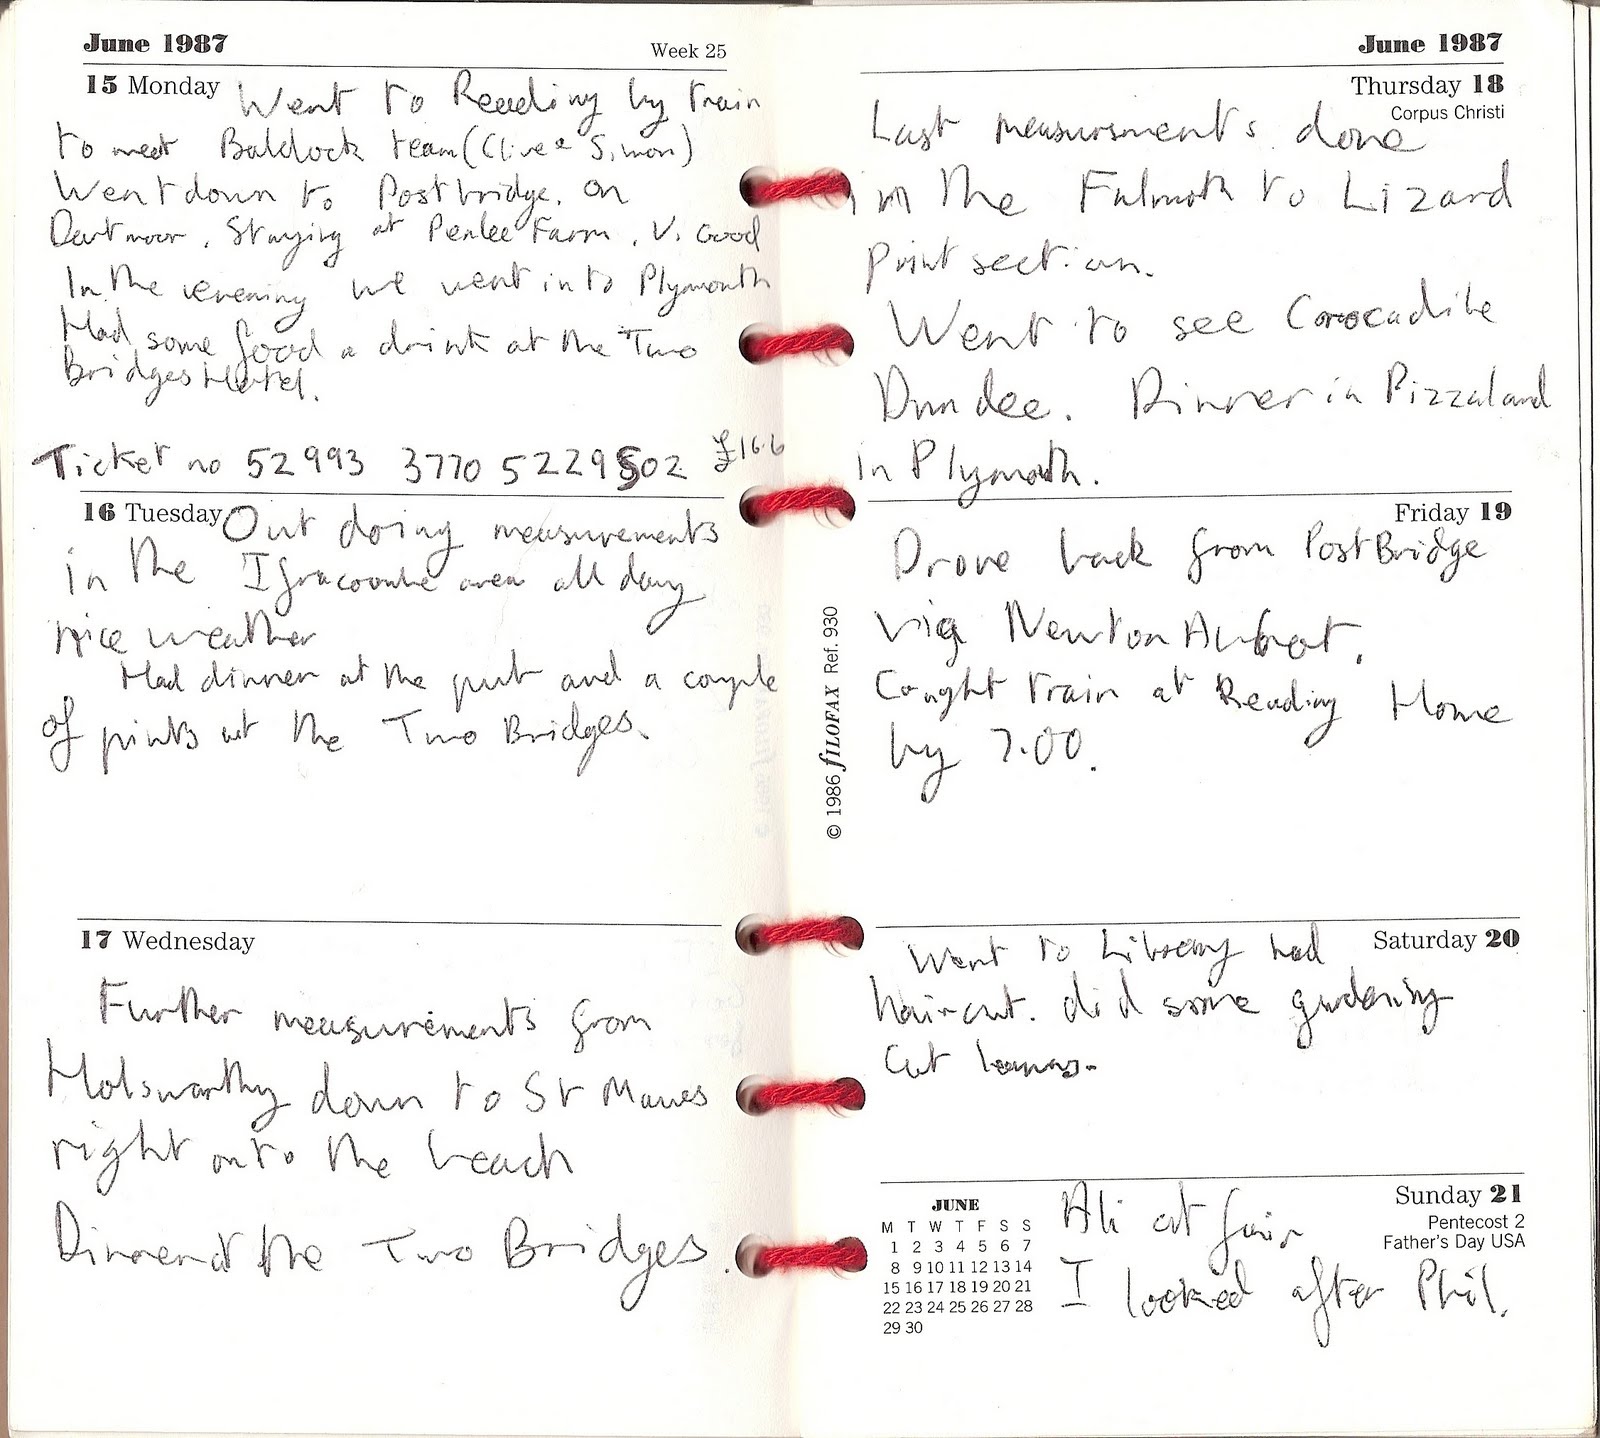 June 1987
Week 25
15 Monday Went to Reading by train
to meet Baldock team (Clive & Simon)
Went down to Postbridge. on
Dartmoor. Staying at Penlee Farm. V. Good
In the evening we went into Plymouth
Had some food a drink at the Two
Bridges Hotel.
Ticket no 52993 3770 52299502 £16.6
16 Tuesday Out doing measurements
in the Ifracoombe area all day
nice weather
Had dinner at the pub and a couple
of pints at the Two Bridges.
17 Wednesday
Further measurements from
Holsworthy down to St Mawes
right onto the beach
Dinner at the Two Bridges.
June 1987
Thursday 18
Corpus Christi
Last measursments done
in the Falmoth to Lizard
point section.
Went to see Crocadile
Dundee. Dinner in Pizzaland
in Plymouth.
Friday 19
Drove back from PostBridge
via Newton Abbot.
Caught train at Reading Home
by 7.00.
© 1986 fILOFAX Ref. 930
Saturday 20
Went to Library had
haircut. did some gardening
Cut lawns.
Sunday 21
Pentecost 2
Father's Day USA
Ali at fair
I looked after Phil.
JUNE
M T W T F S S
1 2 3 4 5 6 7
8 9 10 11 12 13 14
15 16 17 18 19 20 21
22 23 24 25 26 27 28
29 30